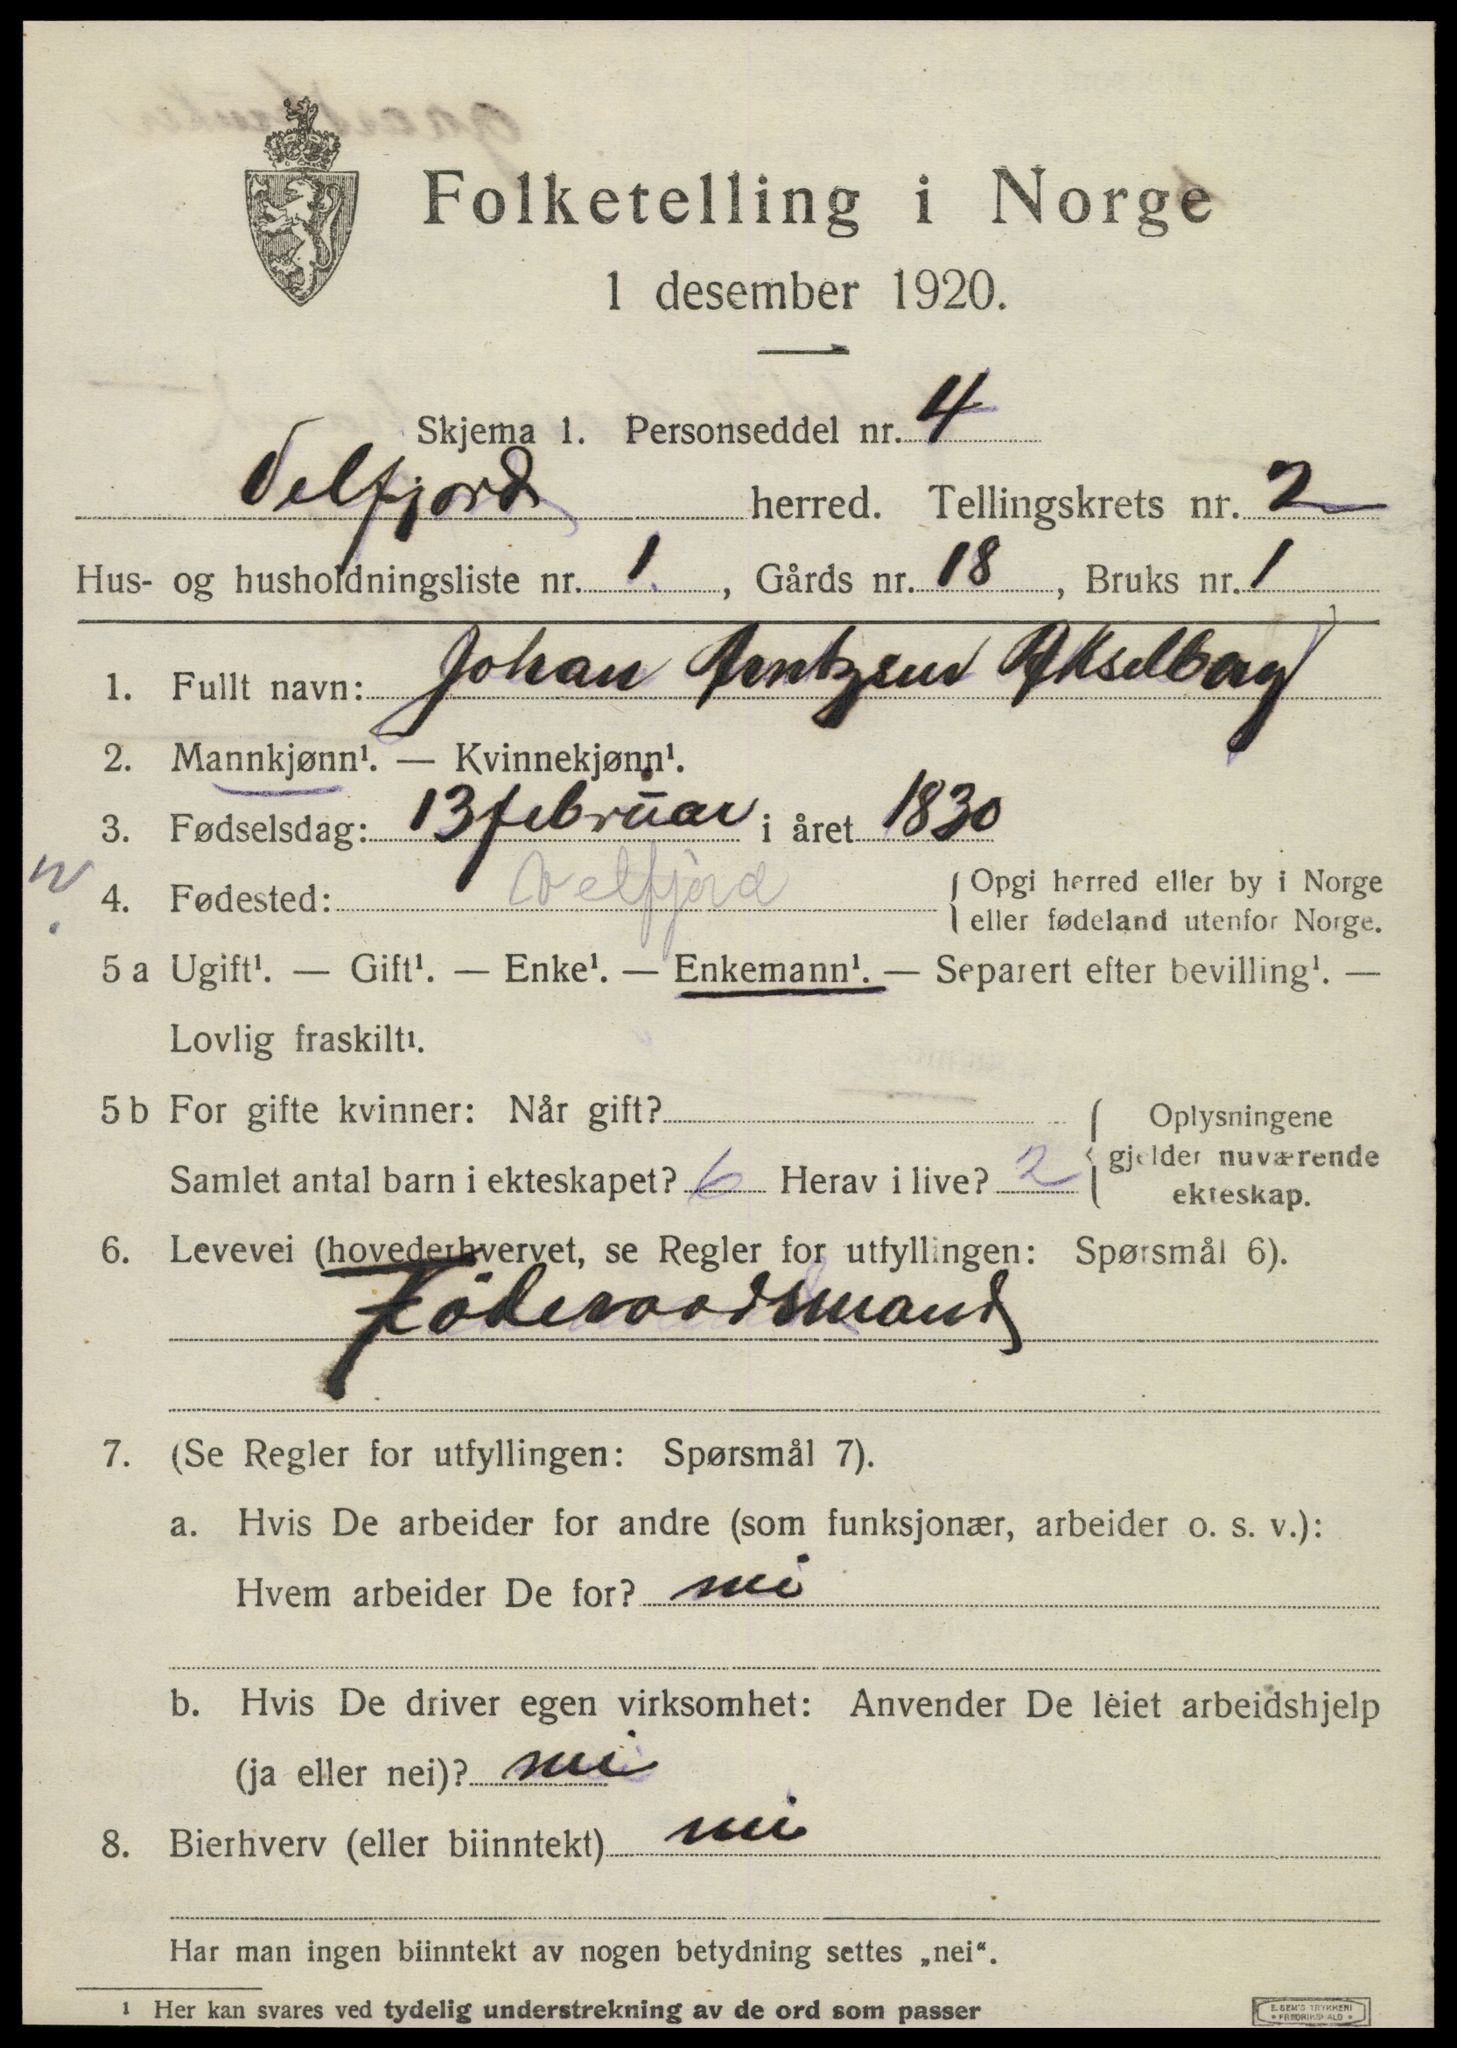 Folketelling i Norge
1 desember 1920.
Skjema 1. Personseddel nr. 4
Velfjord herred. Tellingskrets nr. 2
Hus- og husholdningsliste nr. 1, Gårds nr. 18, Bruks nr. 1
1. Fullt navn: Johan Arntzen Akselberg
2. Mannkjønn¹. — Kvinnekjønn¹.
3. Fødselsdag: 13 februar i året 1830
4. Fødested: Velfjord { Opgi herred eller by i Norge
eller fødeland utenfor Norge.
5 a Ugift¹. — Gift¹. — Enke¹. — Enkemann¹. — Separert efter bevilling¹. —
Lovlig fraskilt¹.
5 b For gifte kvinner: Når gift? { Oplysningene
gjelder nuværende
Samlet antal barn i ekteskapet? 6 Herav i live? 2 ekteskap.
6. Levevei (hovederhvervet, se Regler for utfyllingen: Spørsmål 6).
Föderaadsmand
7. (Se Regler for utfyllingen: Spørsmål 7).
a. Hvis De arbeider for andre (som funksjonær, arbeider o. s. v.):
Hvem arbeider De for? nei
b. Hvis De driver egen virksomhet: Anvender De leiet arbeidshjelp
(ja eller nei)? nei
8. Bierhverv (eller biinntekt) nei
Har man ingen biinntekt av nogen betydning settes „nei“.
¹ Her kan svares ved tydelig understrekning av de ord som passer
E. SEM'S TRYKKERI
* FREDRIKSHALD *